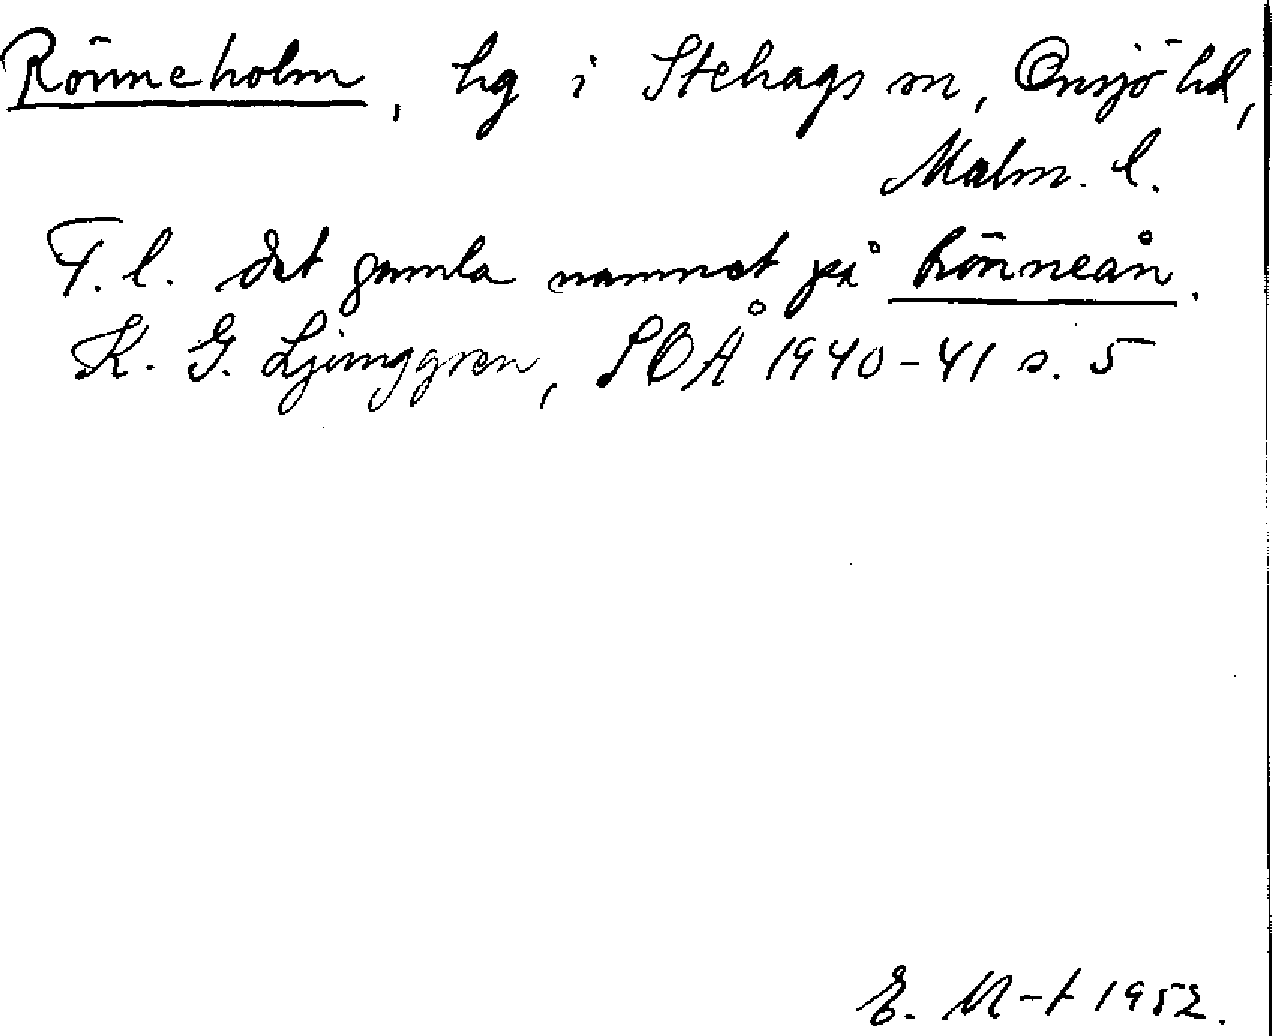 Rönneholm, hg i Stehags sn, Onsjö hd,
Malm. l.
F. l. det gamla namnet på Rönneån.
K. G. Ljunggren, SOÅ 1940-41 s. 5
E. M-t 1952.